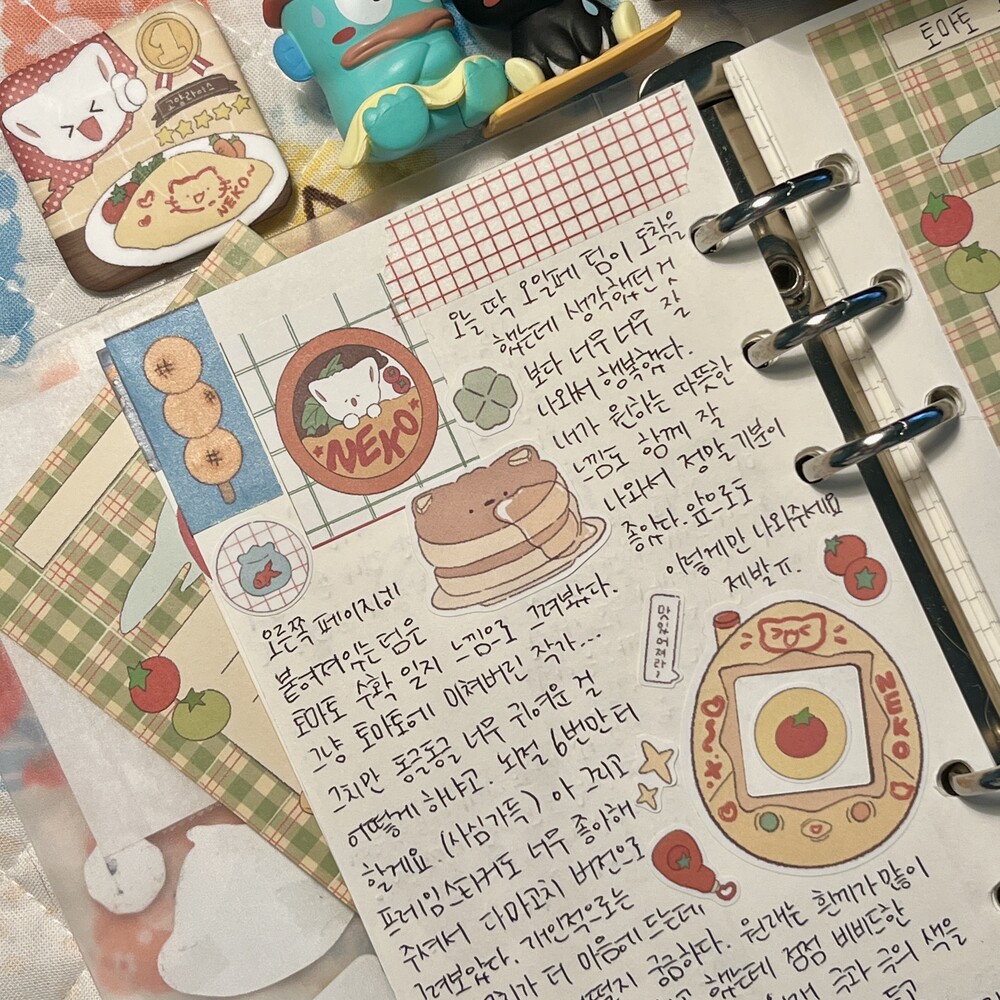 고양라이스
1
NEKO~
토마토
오늘 딱 오일페 덤이 도착을
했는데 생각했던 것
보다 너무너무 잘
나와서 행복했다.
내가 원하는 따뜻한
느낌도 함께 잘
나와서 정말 기분이
좋았다. 앞으로도
이렇게만 나와주세요
제발ㅠ.
NEKO
오른쪽 페이지에
붙여져있는 덤은
토마토 수확 일지 느낌으로 그려봤다.
그냥 토마토에 미쳐버린 작가...
그치만 동글동글 너무 귀여운 걸
어떻게 하냐고. 뇌절 6번만 더
할게요. (사심가득) 아 그리고
프레임스티커도 너무 좋아해
주셔서 다마고치 버전으로
그려보았다. 개인적으로는
더 마음에 드는데
어떨지 궁금하다. 원래는 흰끼가 많이
했는데 점점 비비드한
극과 극의 색을
맛있어져라~
NEKO